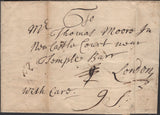 To
Mr Thomas Moore In
New Castle Court near
Temple Barr
London
with Care.